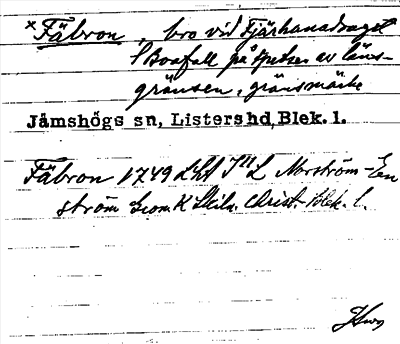 ×Fäbron, bro vid Tjärhanadraget
i Boafall på spetsen av läns-
gränsen, gränsmärke
Jämshögs sn, Listers hd, Blek. l.
Fäbron 1749 LhA Norström-En
ström Geom. Christ.-Blek. l.